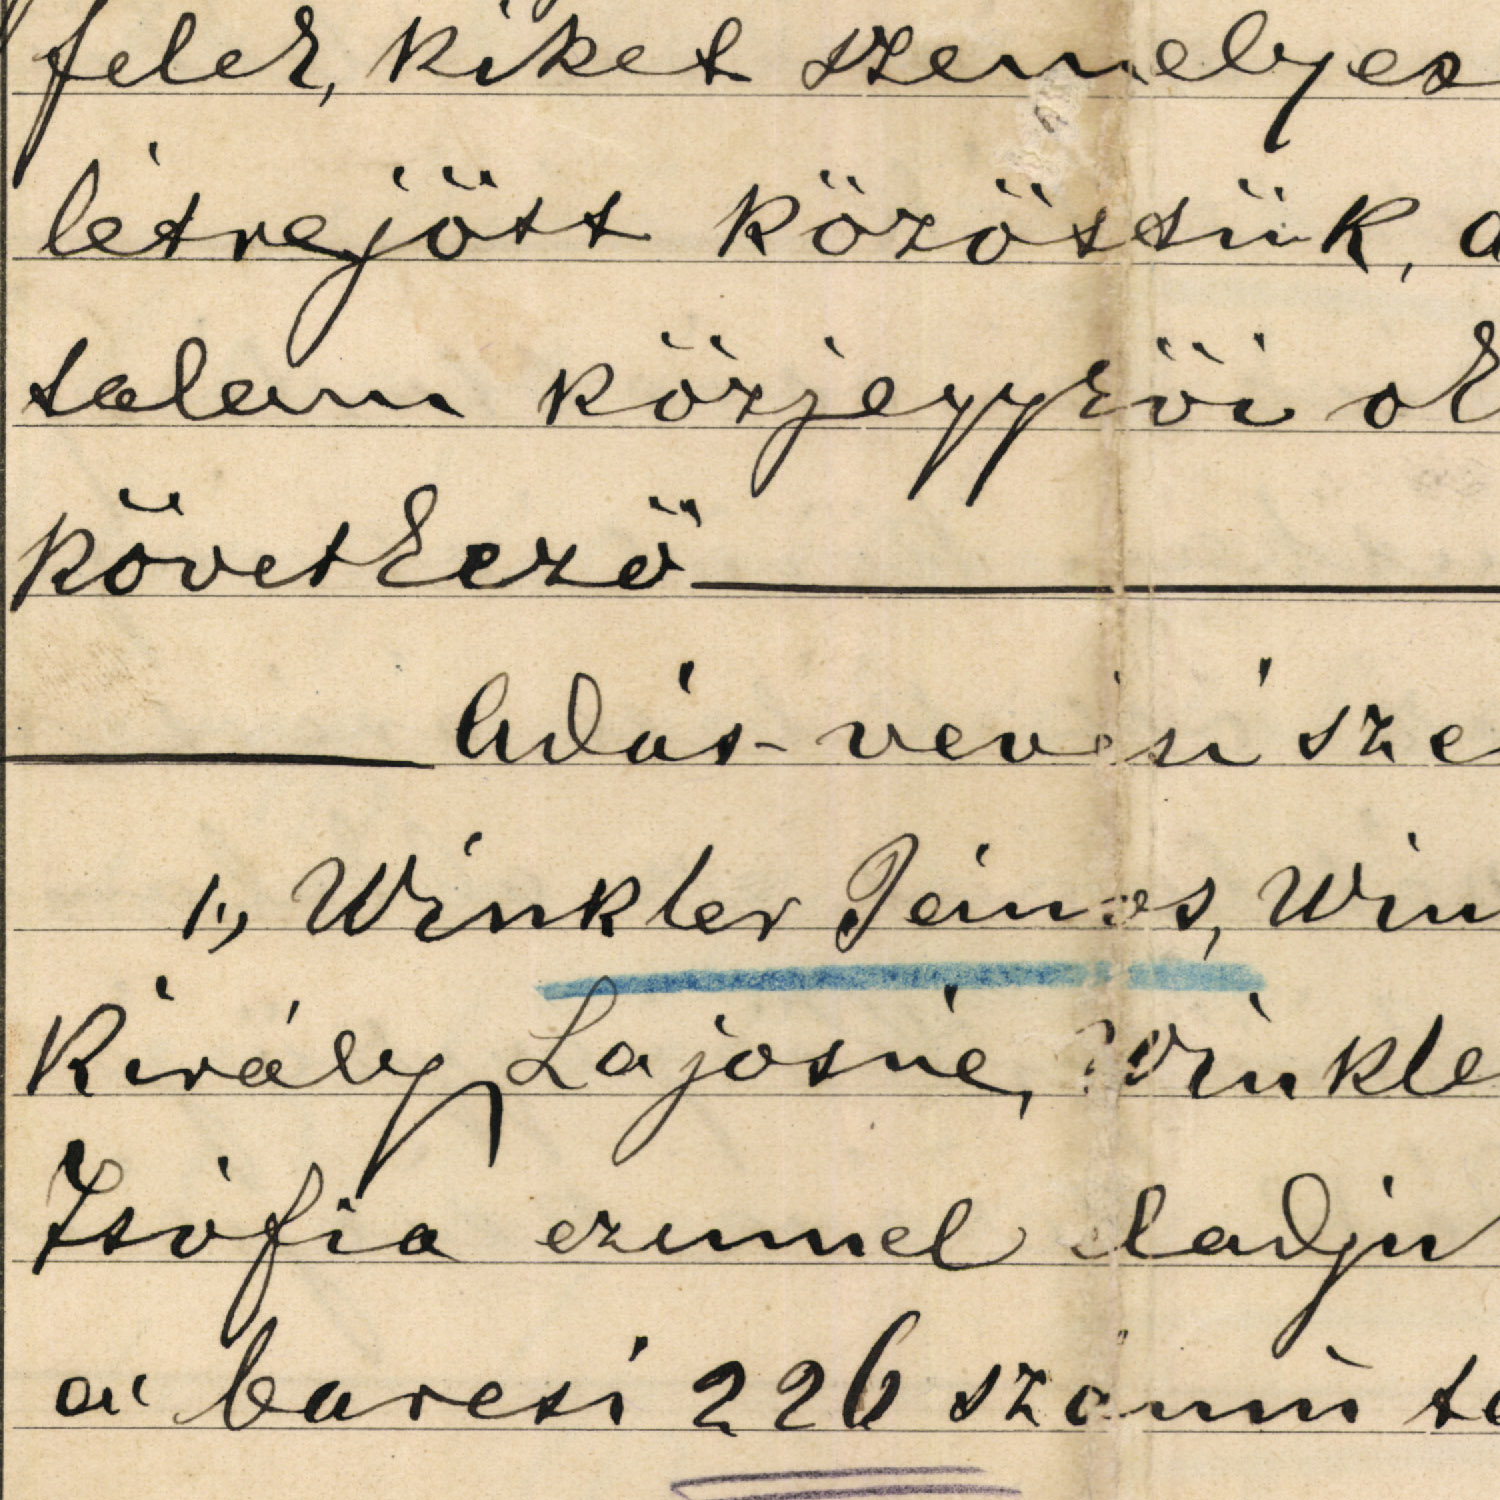 felek, kiket személyes
létrejött közöttük, a
talam közjegyzői ok
következő
Adás-vevési sze
1., Winkler János, Win
Király Lajosné, Winkle
Zsófia ezennel eladju
a barcsi 226 számú te